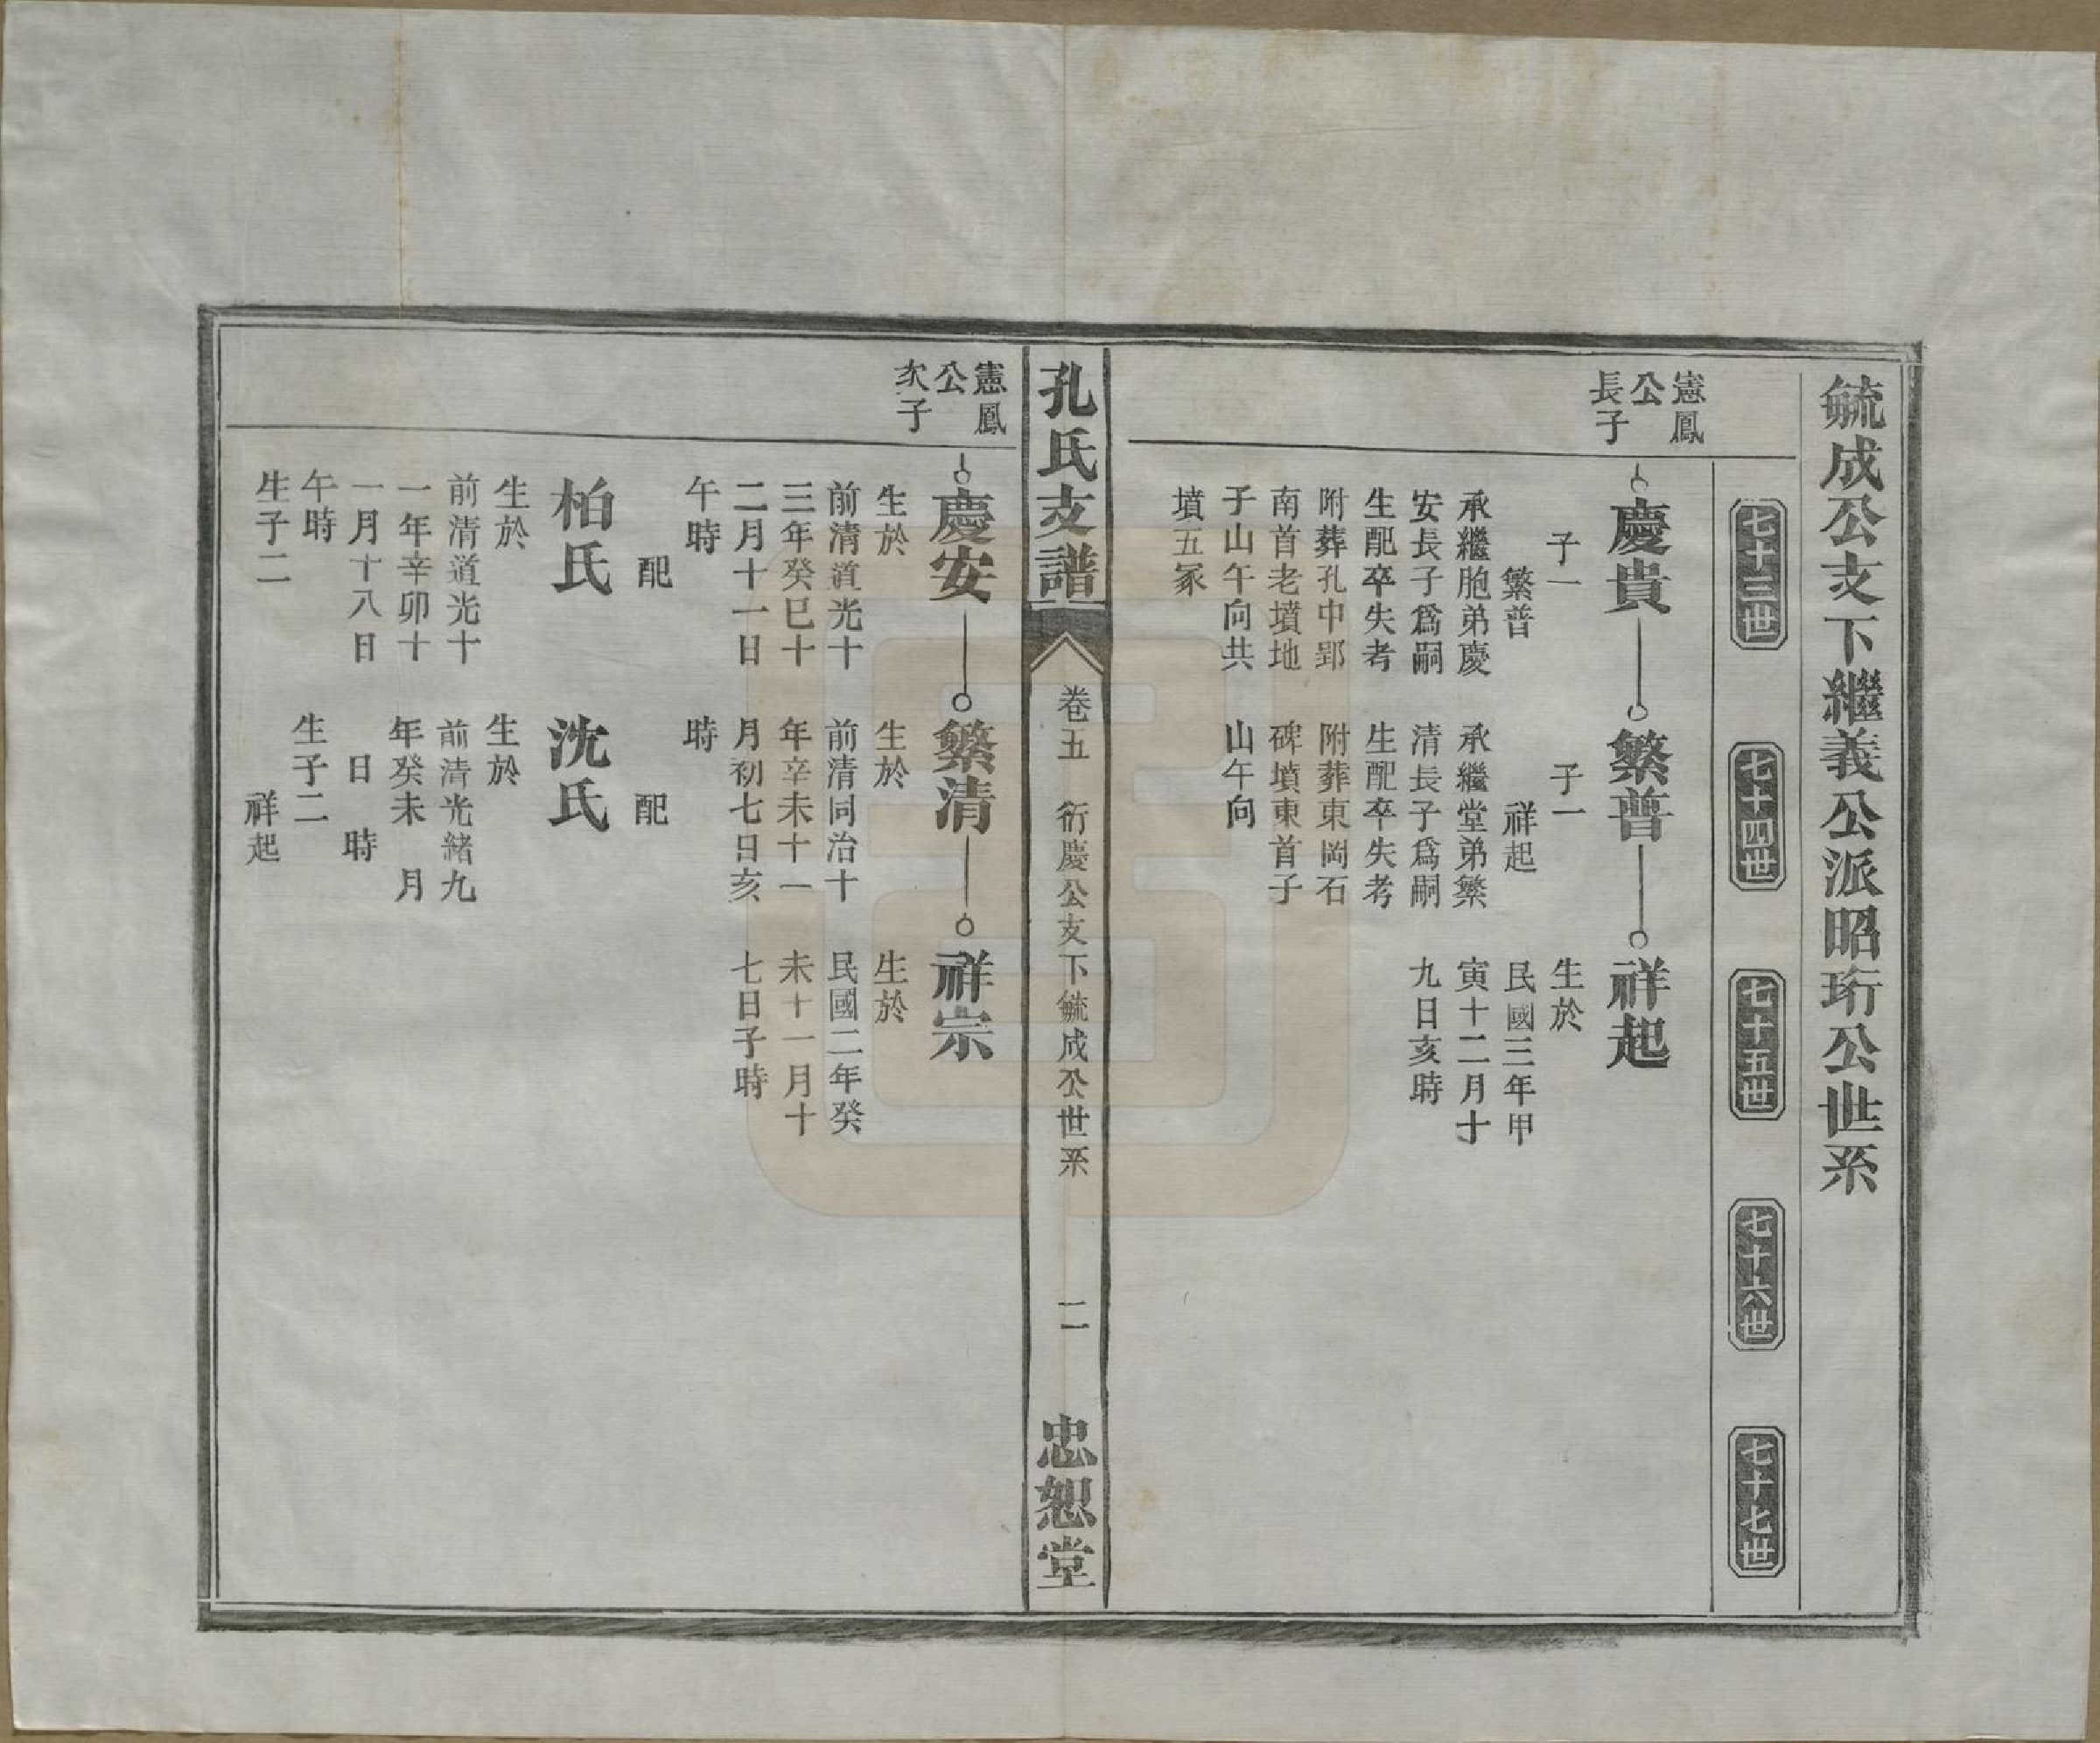 毓成公支下繼義公派昭珩公世系
七十三世
七十四世
七十五世
七十六世
七十七世
憲鳳
公
長子
慶貴
子一
繁普
承繼胞弟慶
安長子爲嗣
生配卒失考
附葬孔中郢
南首老墳地
子山午向共
墳五冢
繁普
子一
祥起
承繼堂弟繁
清長子爲嗣
生配卒失考
附葬東崗石
碑墳東首子
山午向
祥起
生於
民國三年甲
寅十二月十
九日亥時
孔氏支譜
卷五
衍慶公支下毓成公世系
二
忠恕堂
憲鳳
公
次子
慶安
生於
前清道光十
三年癸巳十
二月十一日
午時
配
柏氏
生於
前清道光十
一年辛卯十
一月十八日
午時
生子二
繁清
生於
前清同治十
年辛未十一
月初七日亥
時
配
沈氏
生於
前清光緒九
年癸未 月
日 時
生子二
祥起
祥宗
生於
民國二年癸
未十一月十
七日子時